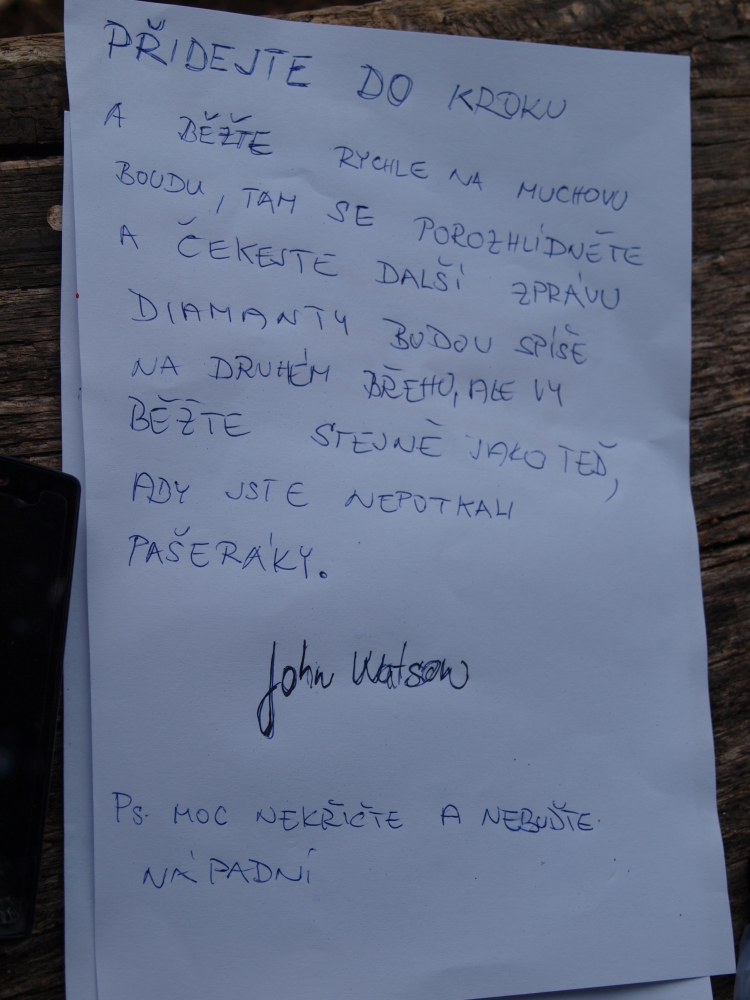 PŘIDEJTE DO KROKU
A BĚŽTE RYCHLE NA MUCHOVU
BOUDU, TAM SE POROZHLÍDNĚTE
A ČEKEJTE DALŠÍ ZPRÁVU
DIAMANTY BUDOU SPÍŠE
NA DRUHÉM BŘEHU, ALE VY
BĚŽTE STEJNĚ JAKO TEĎ,
ADY JSTE NEPOTKALI
PAŠERÁKY.
John Watson
Ps. MOC NEKŘIČTE A NEBUĎTE
NÁPADNÍ